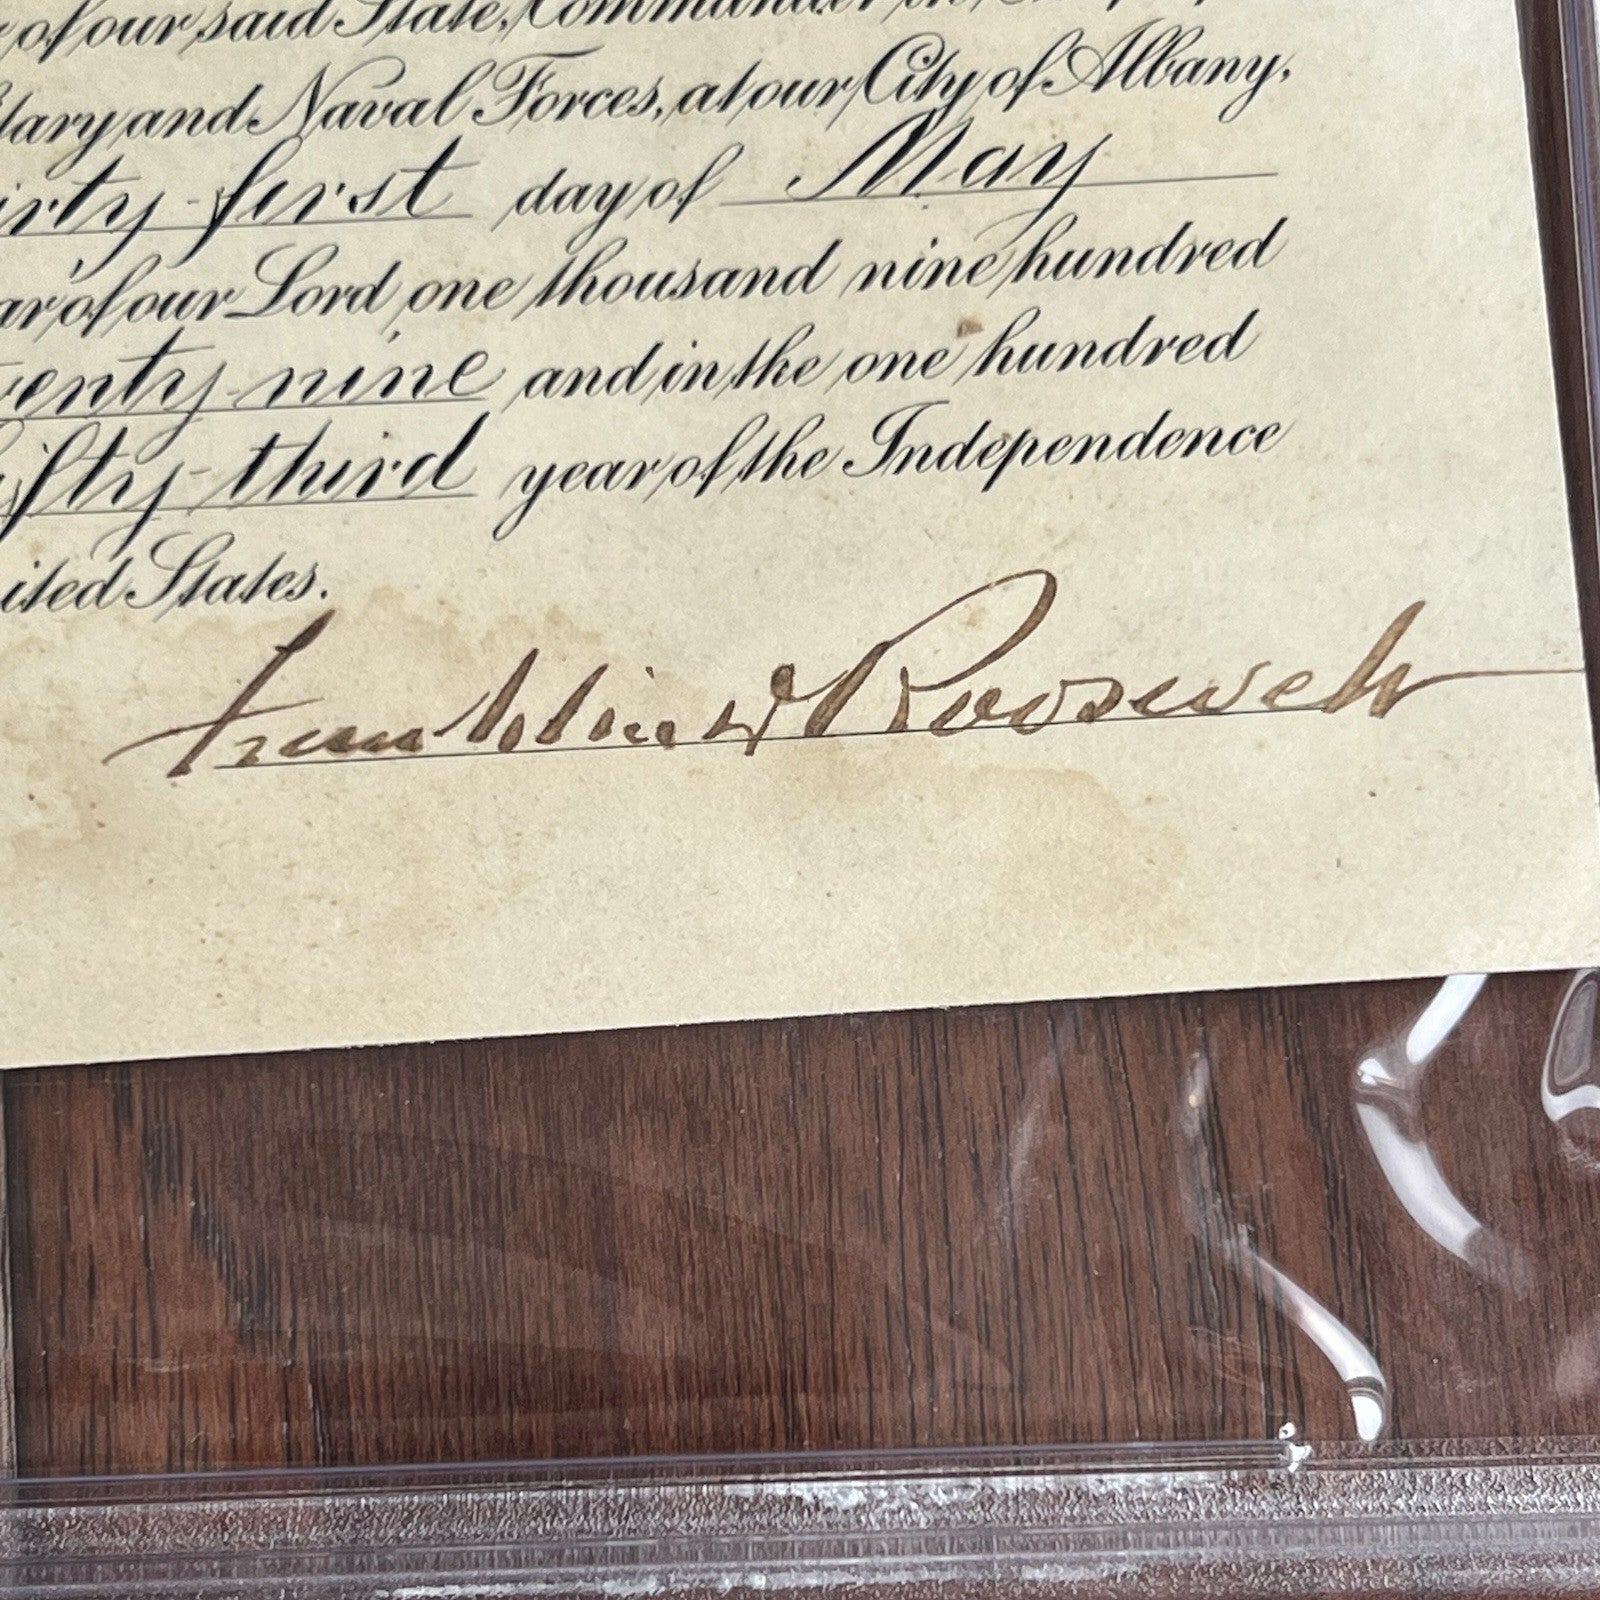 of our said State, Commander in
and Naval Forces, at our City of Albany,
first day of May
of our Lord one thousand nine hundred
nine and in the one hundred
third year of the Independence
States.
Franklin D Roosevelt